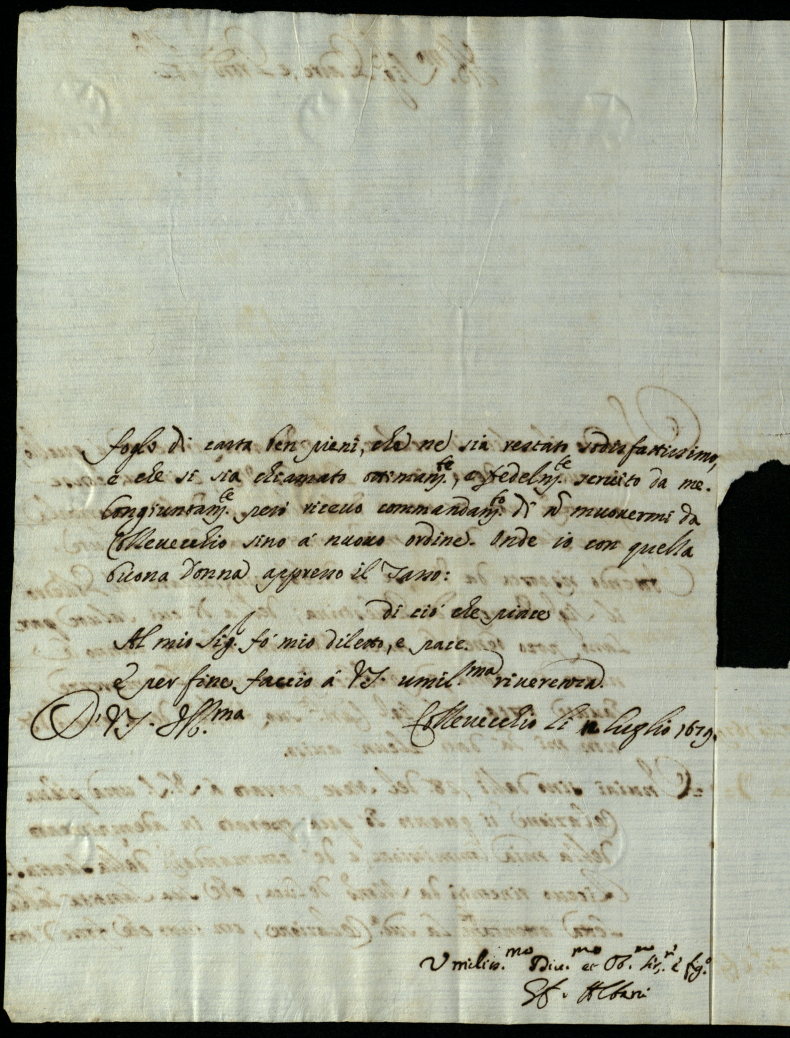 foglij di carta ben pieni, che ne sia restato sodisfattissimo,
e che si sia chiamato ottimam.te, e fedelm.te servito da me.
Congiuntam.te però ricevo commandam.to di ñ muovermi da
Collevecchio sino à nuovo ordine. Onde io con quella
buona Donna appresso il Tasso:
di ciò che piace
Al mio Sig. fò mio diletto, e pace.
e per fine faccio à VS. umil.ma riverenza.
D. VS. Ill.ma
Collevecchio li luglio 1679.
Umiliss.mo Div.mo et Ob.mo Ser.e e fig.o
Albani